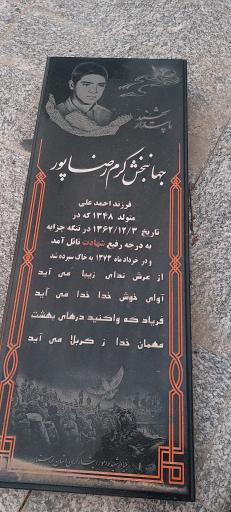 شهید
پاسدار
جهانبخش کرم رضا پور
فرزند احمد علی
متولد ۱۳۴۸ که در
تاریخ ۱۳۶۲/۱۲/۳ در تنگه جزابه
به درجه رفیع شهادت نائل آمد
و در خرداد ماه ۱۳۷۳ به خاک سپرده شد
از عرش ندای زیبا می آید
آوای خوش خدا خدا می آید
فریاد که واکنید درهای بهشت
مهمان خدا ز کربلا می آید